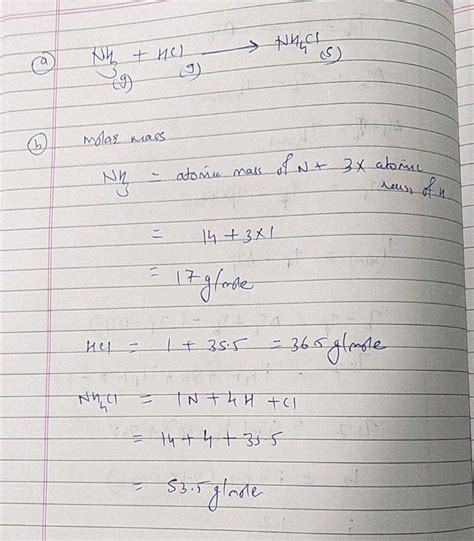 (a) NH3 (g) + HCl (g) → NH4Cl (s)
(b) molar mass
NH3 = atomic mass of N + 3 x atomic
mass of H
= 14 + 3x1
= 17 g/mole
HCl = 1 + 35.5 = 36.5 g/mole
NH4Cl = 1N + 4H + Cl
= 14 + 4 + 35.5
= 53.5 g/mole